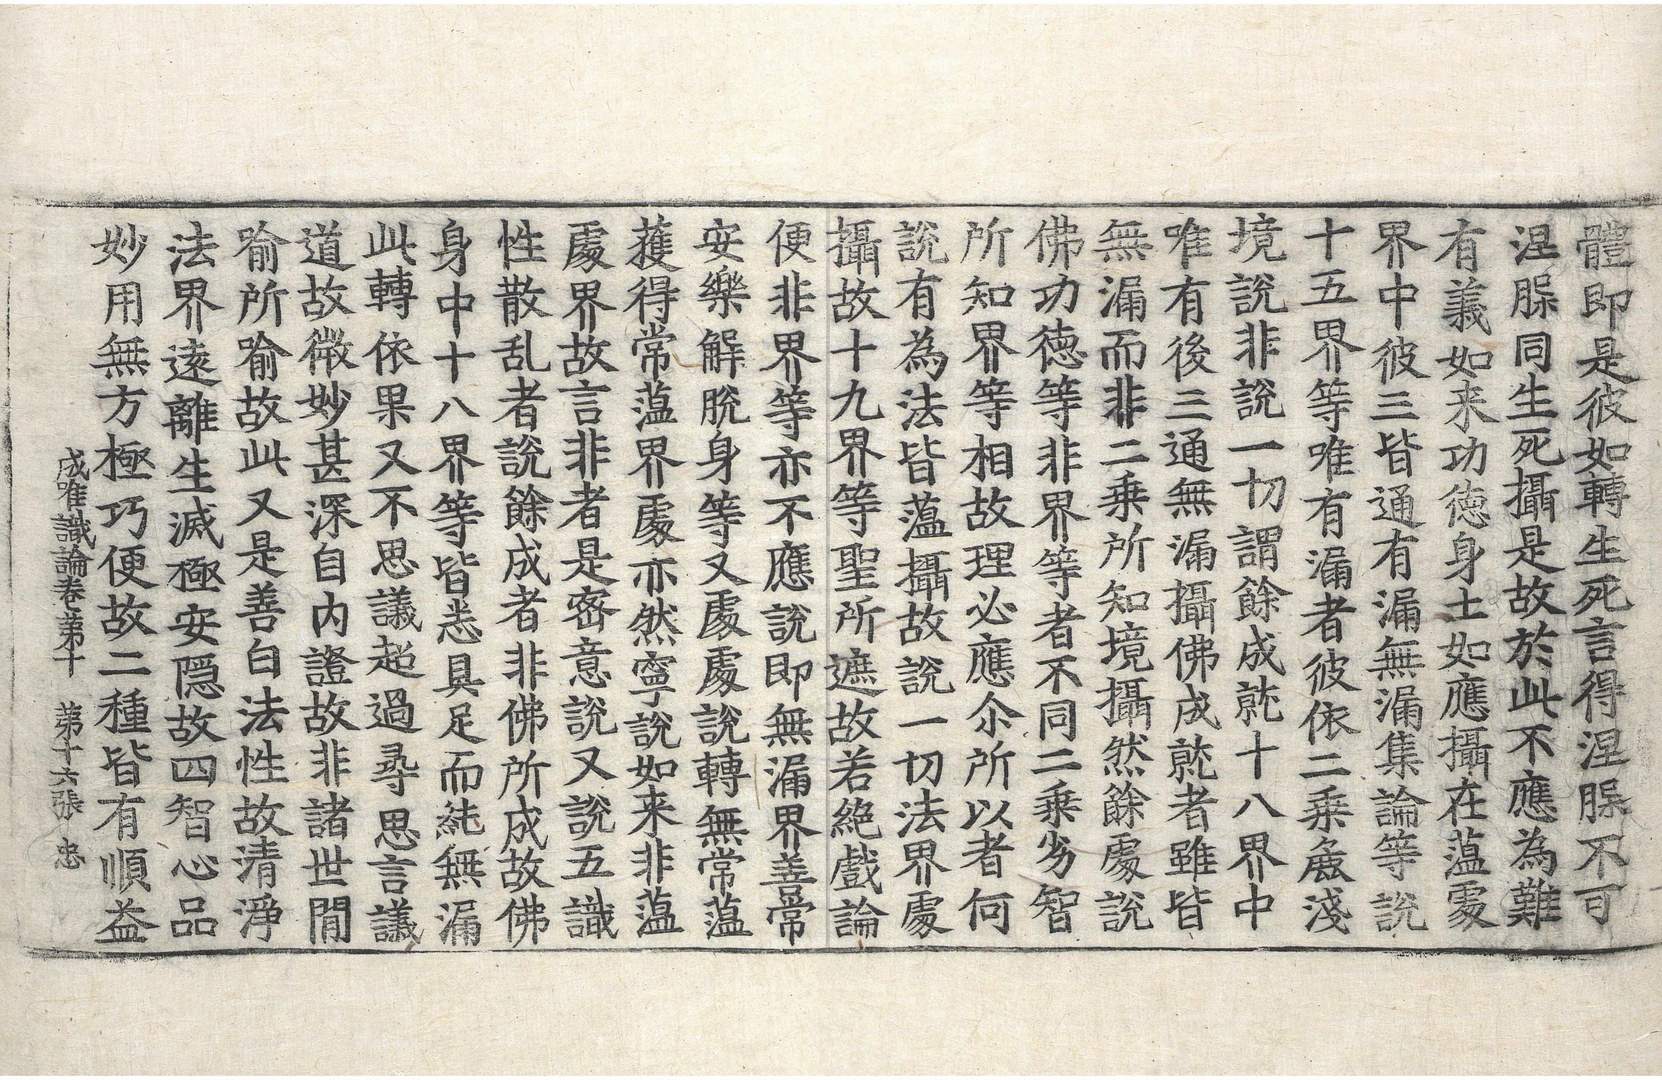 體即是彼如轉生死言得涅脲不可
涅脲同生死攝是故於此不應為難
有義如来功徳身土如應攝在薀處
界中彼三皆通有漏無漏集論等說
十五界等唯有漏者彼依二乗麁淺
境說非說一切謂餘成就十八界中
唯有後三通無漏攝佛成就者雖皆
無漏而非二乗所知境攝然餘處說
佛功徳等非界等者不同二乗劣智
所知界等相故理必應尒所以者何
說有為法皆薀攝故說一切法界處
攝故十九界等聖所遮故若絶戲論
便非界等亦不應說即無漏界善常
安樂解脫身等又處處說轉無常薀
獲得常薀界處亦然寧說如来非薀
處界故言非者是密意說又說五識
性散乱者說餘成者非佛所成故佛
身中十八界等皆悉具足而純無漏
此轉依果又不思議超過尋思言議
道故微妙甚深自內證故非諸世閒
喻所喻故此又是善白法性故清淨
法界遠離生滅極安隱故四智心品
妙用無方極巧便故二種皆有順益
成唯識論卷苐十　苐十六張　忠